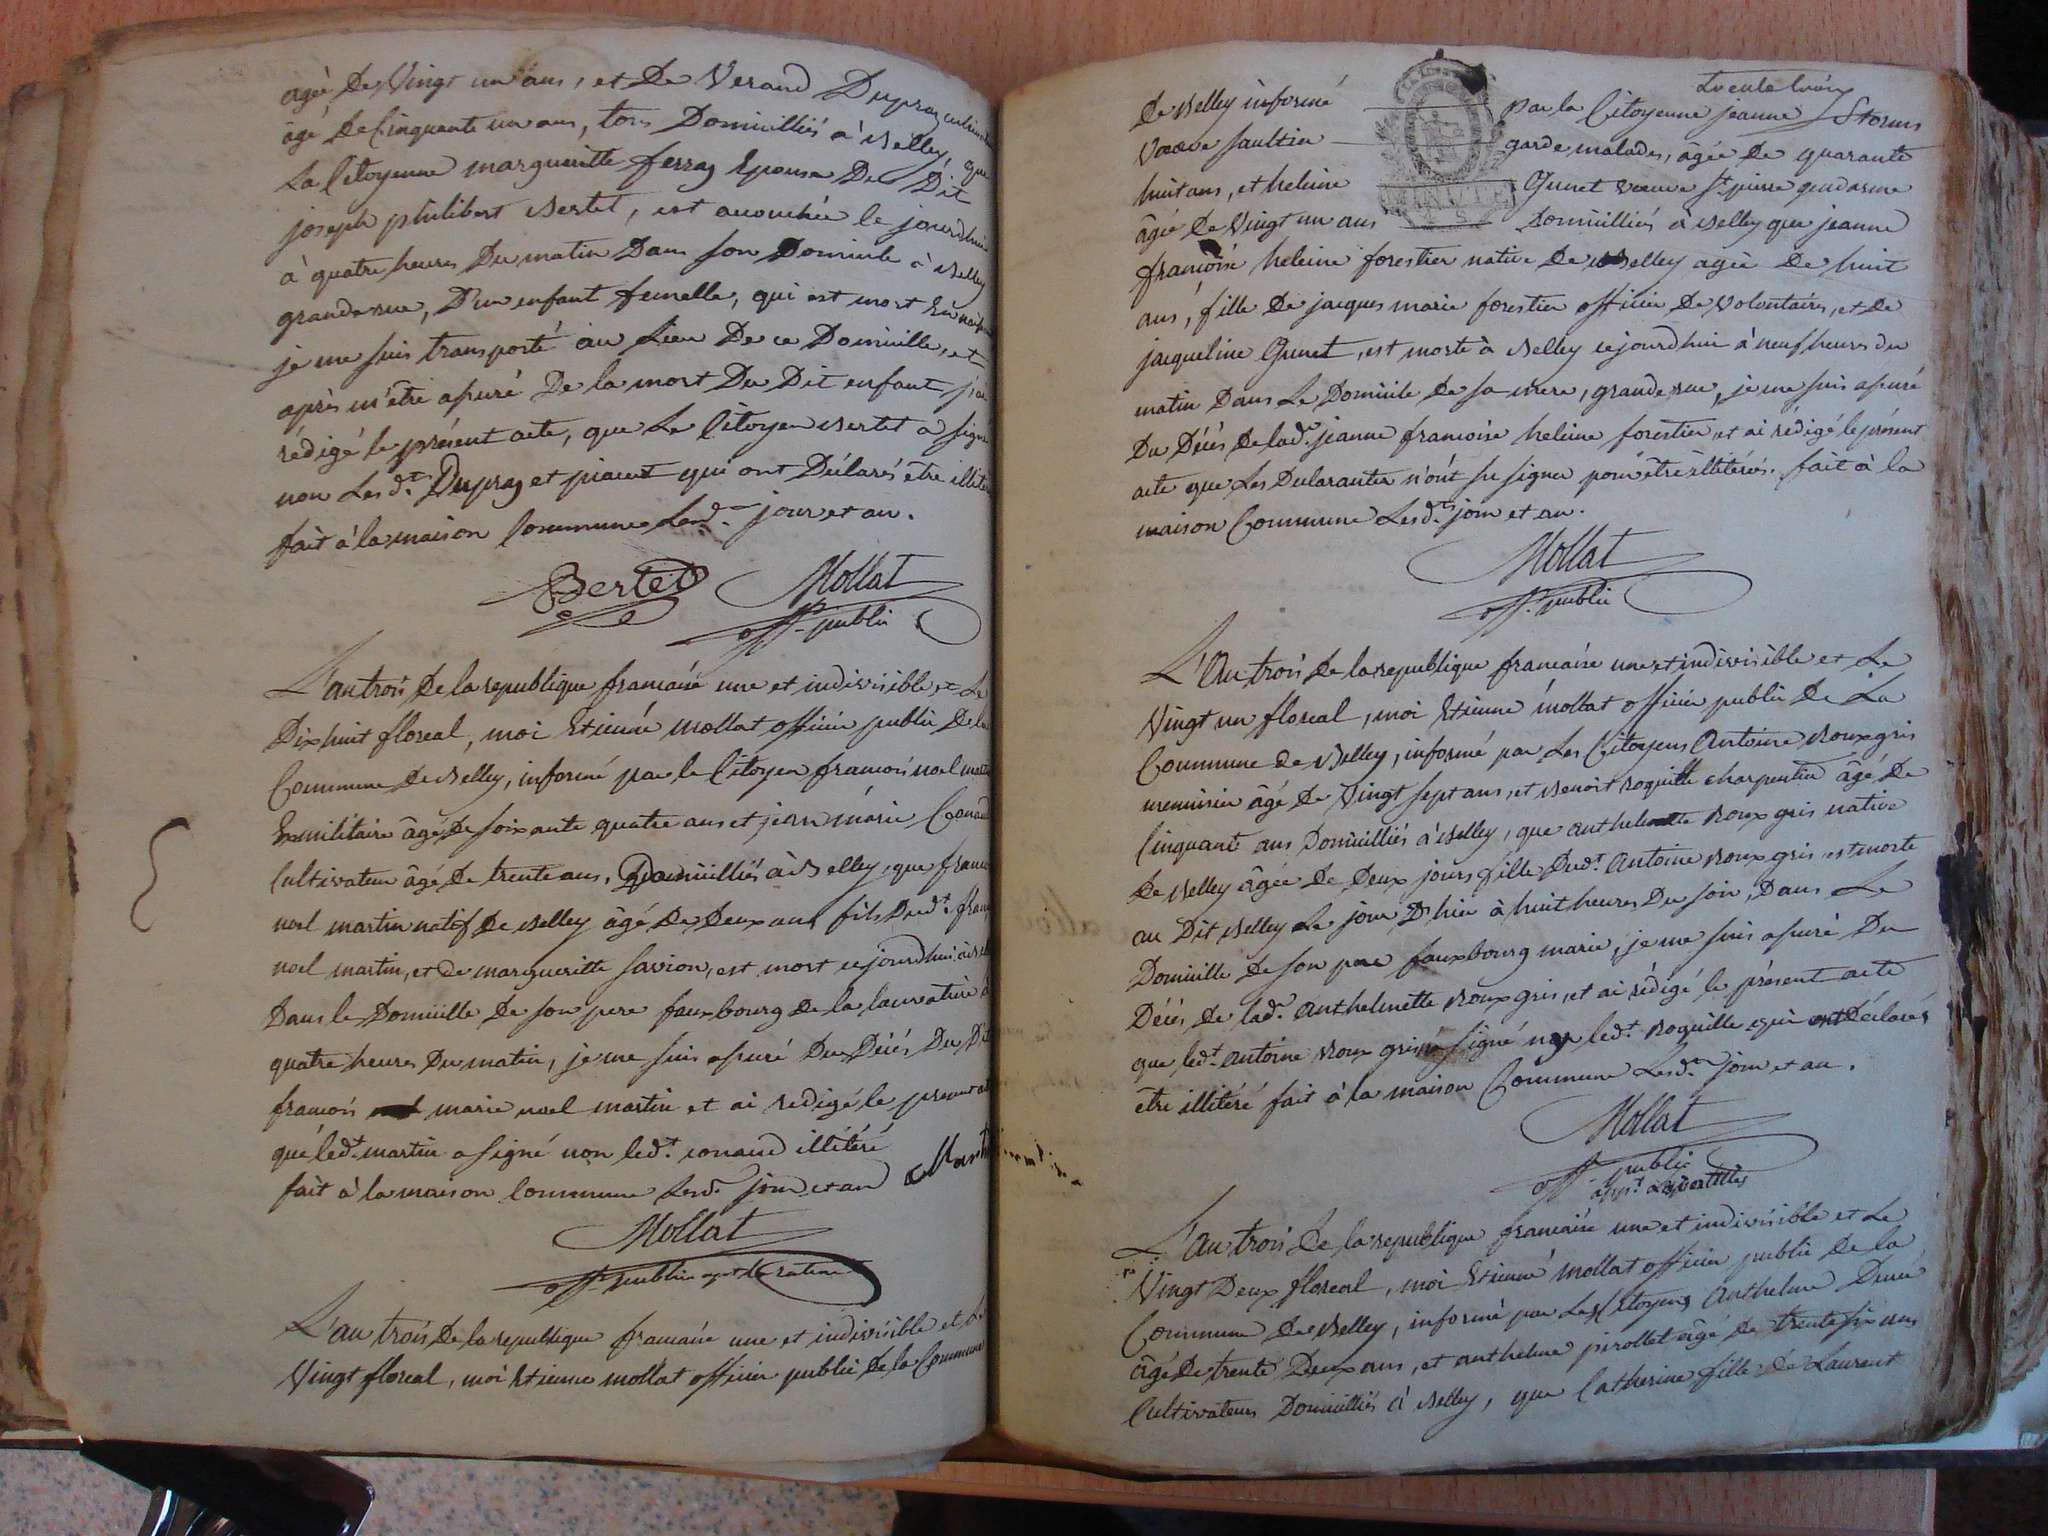 agé de Vingt un ans, et de Verand Dupraz
âgé de Cinquante un ans, tous Domiciliés à Belley, que
La Citoyenne margueritte ferraz Epouse Du Dit
joseph philibert Bertet, est accouchée le jourdhui
à quatre heures Du matin Dans son Domicile à Belley
grande rue, D'un enfant femelle, qui est mort En
je me suis transporté au Lieu De ce Domicille, et
après m'être assuré De la mort Du Dit enfant j'ai
rédigé le présent acte, que Le Citoyen Bertet a signé
non Lesdt. Dupraz et piavet qui ont Déclarés être
fait à la maison Commune Lesd. jour et an.
Bertet Mollat
off. public
L'an trois De la republique francaise une et indivisible et Le
Dix huit floreal, moi Etienne Mollat officier public De la
Commune De Belley, informé par le Citoyen francois noel
Exmilitaire âgé De soixante quatre ans et jean marie
Cultivateur âgé De trente ans, Domiciliés à Belley, que
noel martin natif De Belley âgé De Deux ans fils Dudt.
noel martin, et De margueritte savion, est mort cejourdhui
Dans le Domicille De son pere fauxbourg de la
quatre heures Du matin, je me suis assuré Du Décés Du Dit
francois marie noel martin et ai redigé le present
que ledt. martin a signé non ledt. conand illitéré
fait à la maison Commune Lesd. jour et an
Mollat
off. public
L'an trois De la republique francaise une et indivisible et le
Vingt floreal, moi Etienne mollat officier public De la Commune
trente trois
De Belley informé par la Citoyenne jeanne
Veuve garde malades, âgée De quarante
huit ans, et heleine Gunet veuve St. pierre gendarme
âgée De Vingt un ans Domicilliés à Belley que jeanne
francoise heleine forestier native De Belley agée De huit
ans, fille De jacques marie forestier officier De Volontaires, et De
jacqueline Gunet, est morte à Belley cejourdhui à neuf heures du
matin Dans Le Domicile De sa mere, grande rue, je me suis assuré
Du Décés De lad. jeanne francoise heleine forestier et ai rédigé le présent
acte que Les Declarantes n'ont su signer pour être illitérées. fait à la
maison Commune Lesd. jour et an.
Mollat
off. public
L'An trois De la republique francaise une et indivisible et Le
Vingt un floreal, moi Etienne mollat officier public De La
Commune de Belley, informé par Les Citoyens Antoine Roux gris
menuisier âgé De Vingt sept ans, et Benoit roquille charpentier âgé De
Cinquante ans Domicilliés à Belley, que anthelmette Roux gris native
De Belley âgée De Deux jours fille Dudt. Antoine Roux gris est morte
au Dit Belley Le jour D'hier à huit heures Du soir, Dans Le
Domicille De son pere fauxbourg marie, je me suis assuré Du
Décés De lad. anthelmette Roux gris, et ai rédigé le présent acte
que ledt. antoine Roux gris signé non ledt. Roquille qui Déclarés
être illitéré fait à la maison Commune Lesd. jour et an.
Mollat
off. public
L'an trois De la republique francaise une et indivisible et Le
Vingt Deux floreal, moi Etienne mollat officier public De la
Commune De Belley, informé par Les Citoyens Anthelme
âgé De trente Deux ans, et anthelme pirollet âgé De trente six ans
Cultivateurs Domicilliés à Belley, que Catherine fille de Laurent